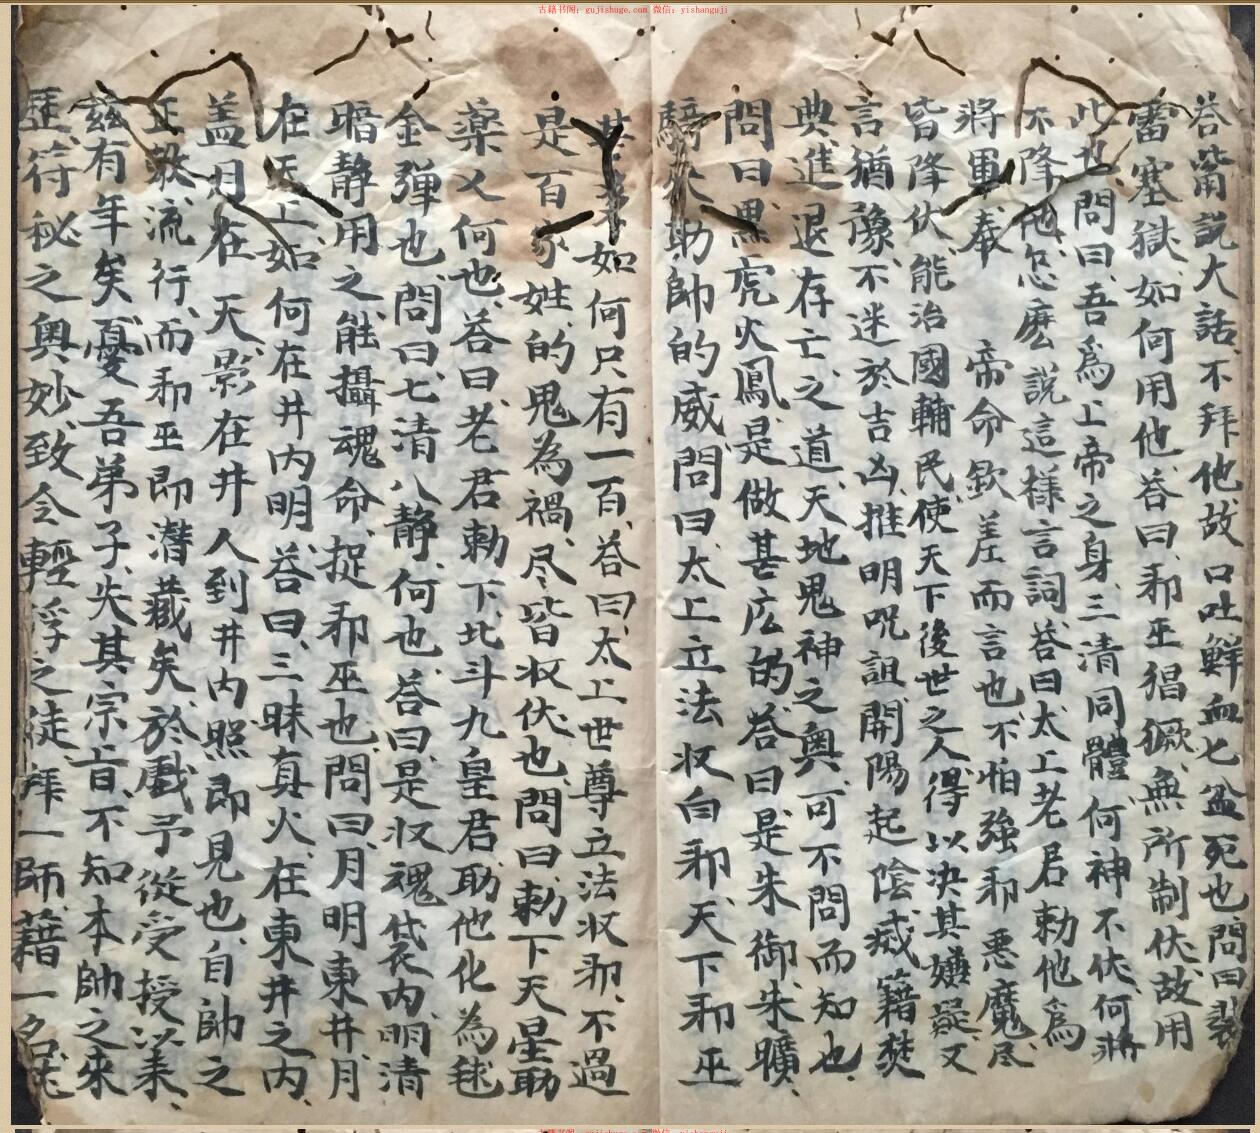 古籍书阁: gujishuge.com 微信: yishanguji
答嘴説大話不拜他故口吐鮮血七盆死也問曰裂
雷塞獄如何用他答曰邪巫猖獗無所制伏故用
此也問曰吾為上帝之身三清同體何神不伏何將
不降他怎麽説這樣言詞答曰太上老君勅他為
將軍奉 帝命欽差而言也不怕強邪悪魔尽
皆降伏能治國輔民使天下後世之人得以决其嫌疑又
言猶豫不迷於吉凶推明咒詛開陽起陰或籍焚
典進退存亡之道天地鬼神之奥可不問而知也
問曰黒虎火鳳是做甚広的答曰是朱御朱曠
助帥的威問曰太上立法収白邪天下邪巫
如何只有一百答曰太上世尊立法収邪不過
是百家姓的鬼為禍尽皆収伏也問曰勅下天星助
藥乂何也答曰老君勅下北斗九皇君助他化為毬
金彈也問曰七清八静何也答曰是収魂袋内明清
暗静用之能攝魂命捉邪巫也問曰月明東井月
在天上如何在井内明答曰三昧真火在東井之内
盖月在 天影在井人到井内照即見也自帥之
正教流行而邪巫即潜藏矣於戲予從受授以来
茲有年矣憂吾弟子失其宗旨不知本帥之來
歴符秘之奥妙致令輕浮之徒拜一師籍一名
古籍书阁: gujishuge.com 微信: yishanguji